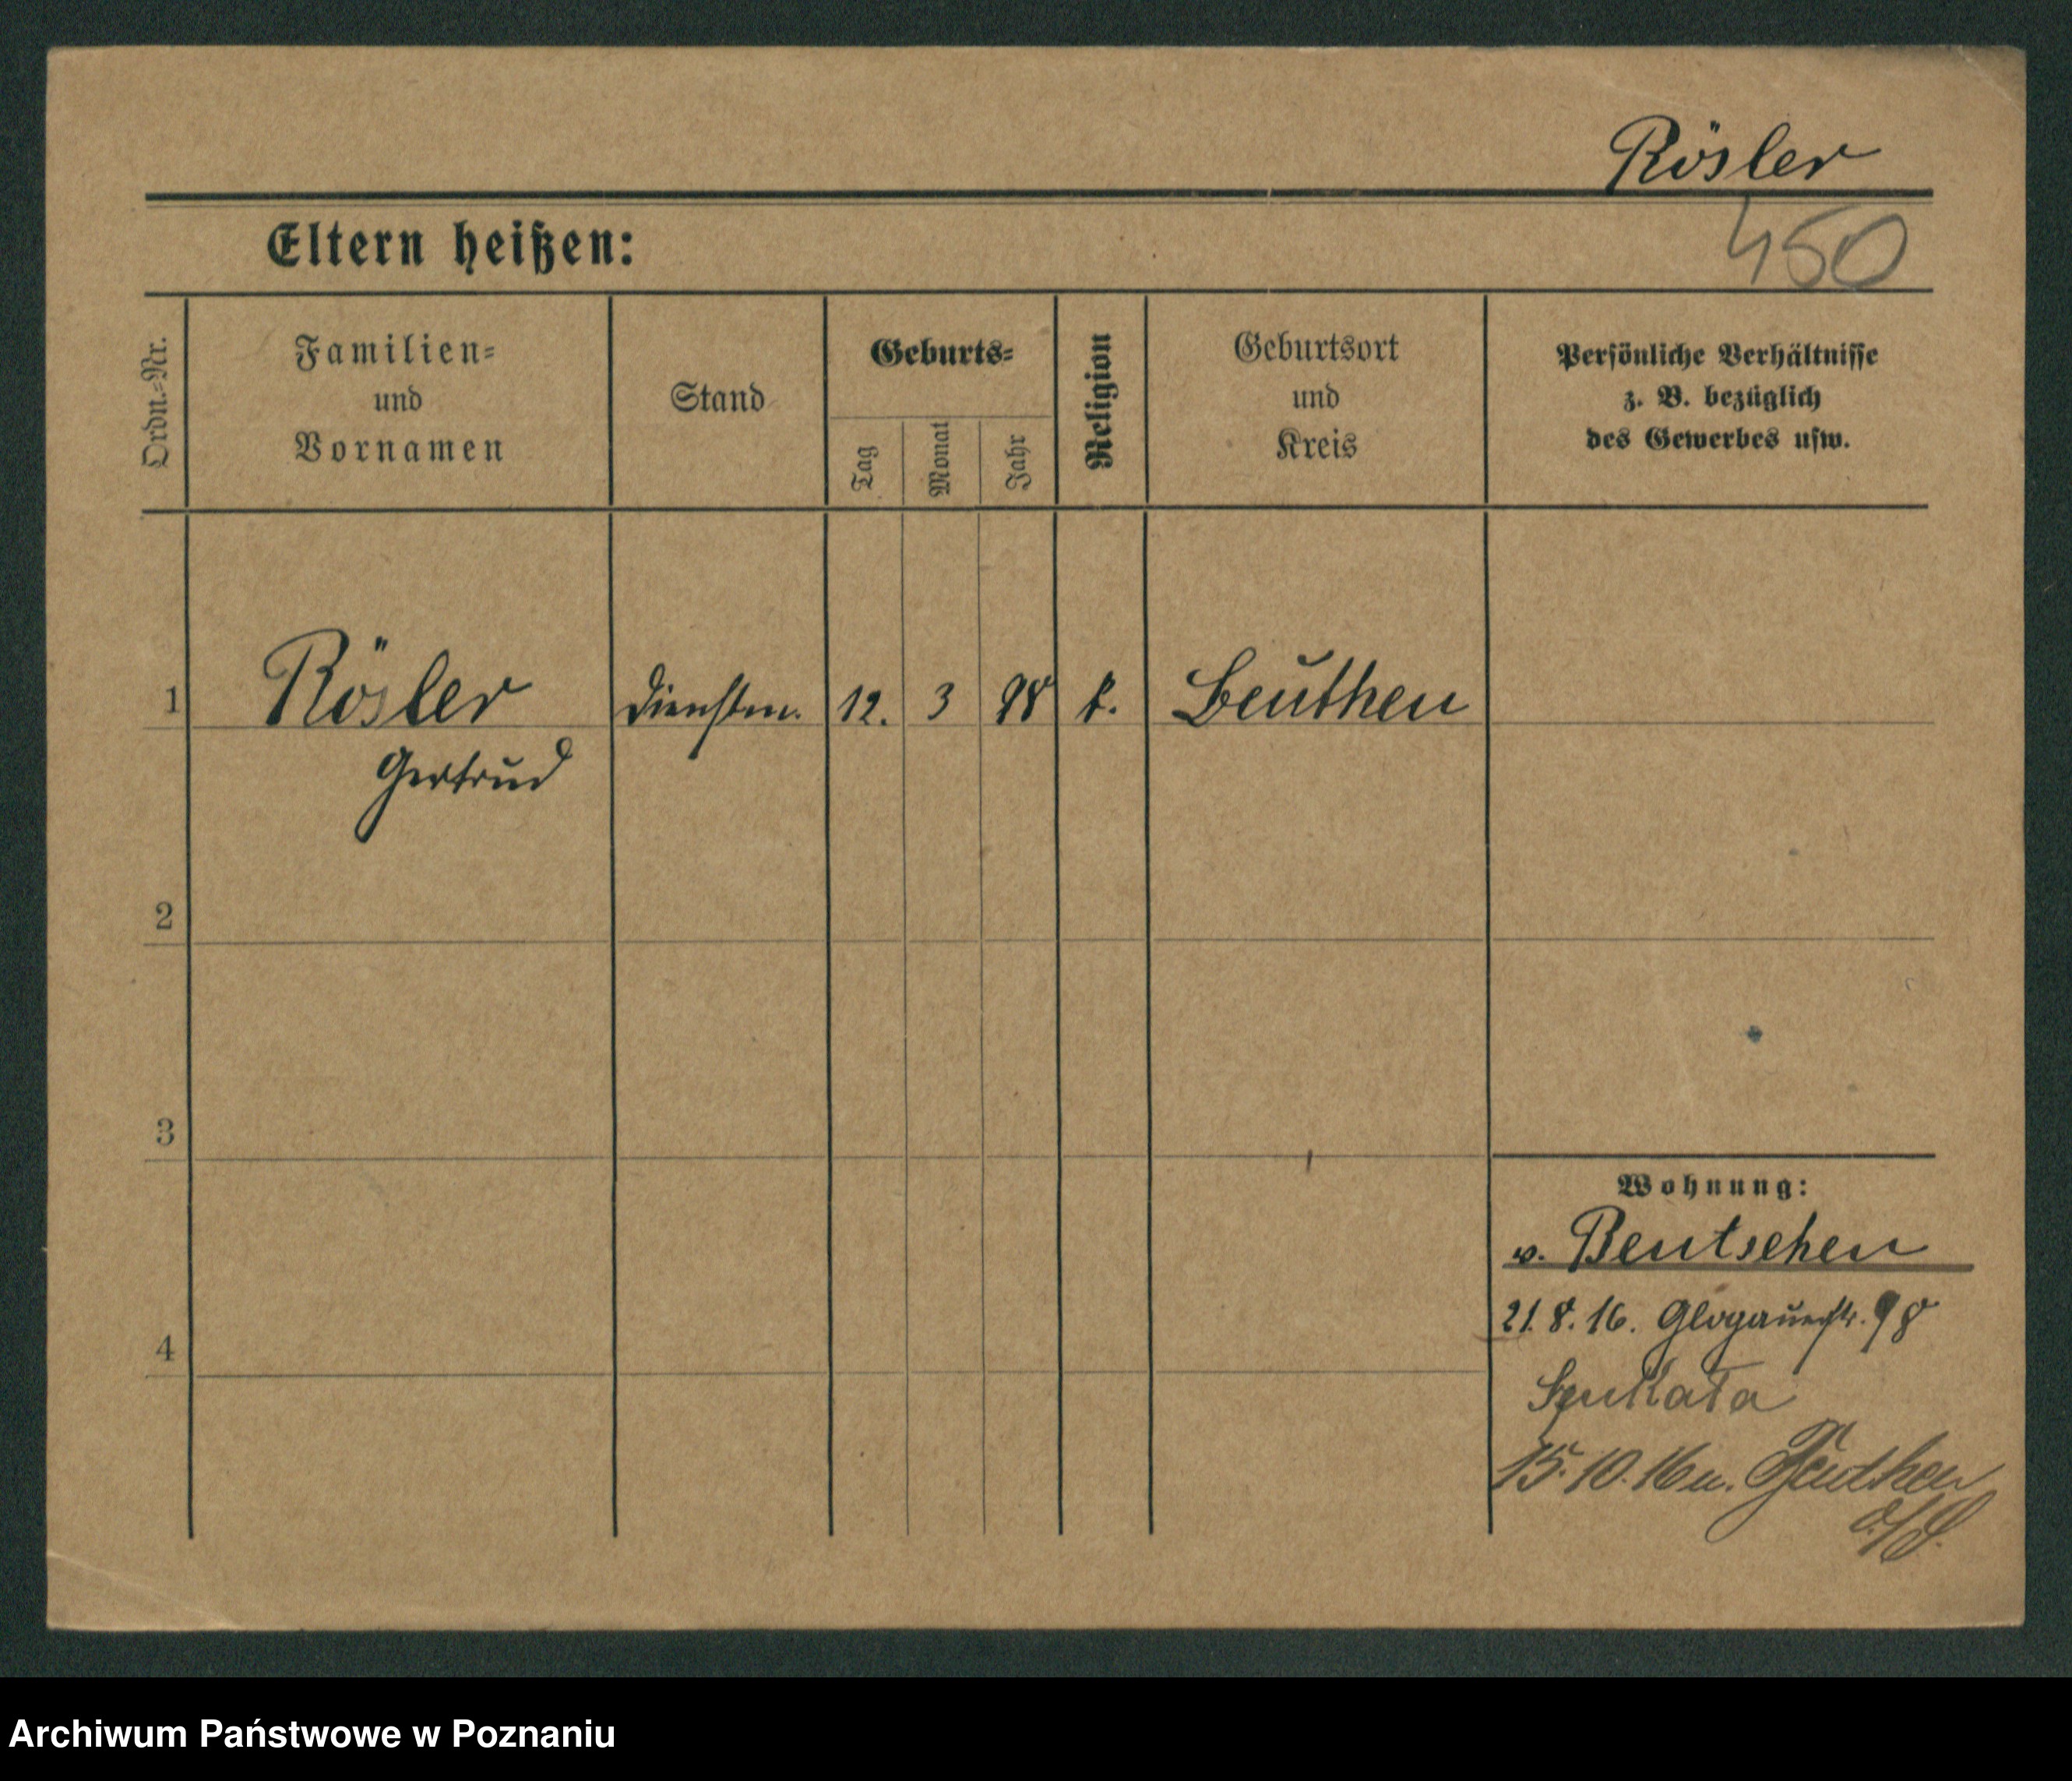 Rösler
450
Eltern heißen:
Ordn.-Nr.
Familien-
und
Vornamen
Stand
Geburts-
Tag
Monat
Jahr
Religion
Geburtsort
und
Kreis
Persönliche Verhältnisse
z. B. bezüglich
des Gewerbes usw.
1 Rösler Dienstm. 12. 3 98 k. Beuthen
Gertrud
2
3
4
Wohnung:
v. Bentschen
21. 8. 16. Glogauerstr. 98
15. 10. 16 n. Beuthen
O/S.
Archiwum Państwowe w Poznaniu